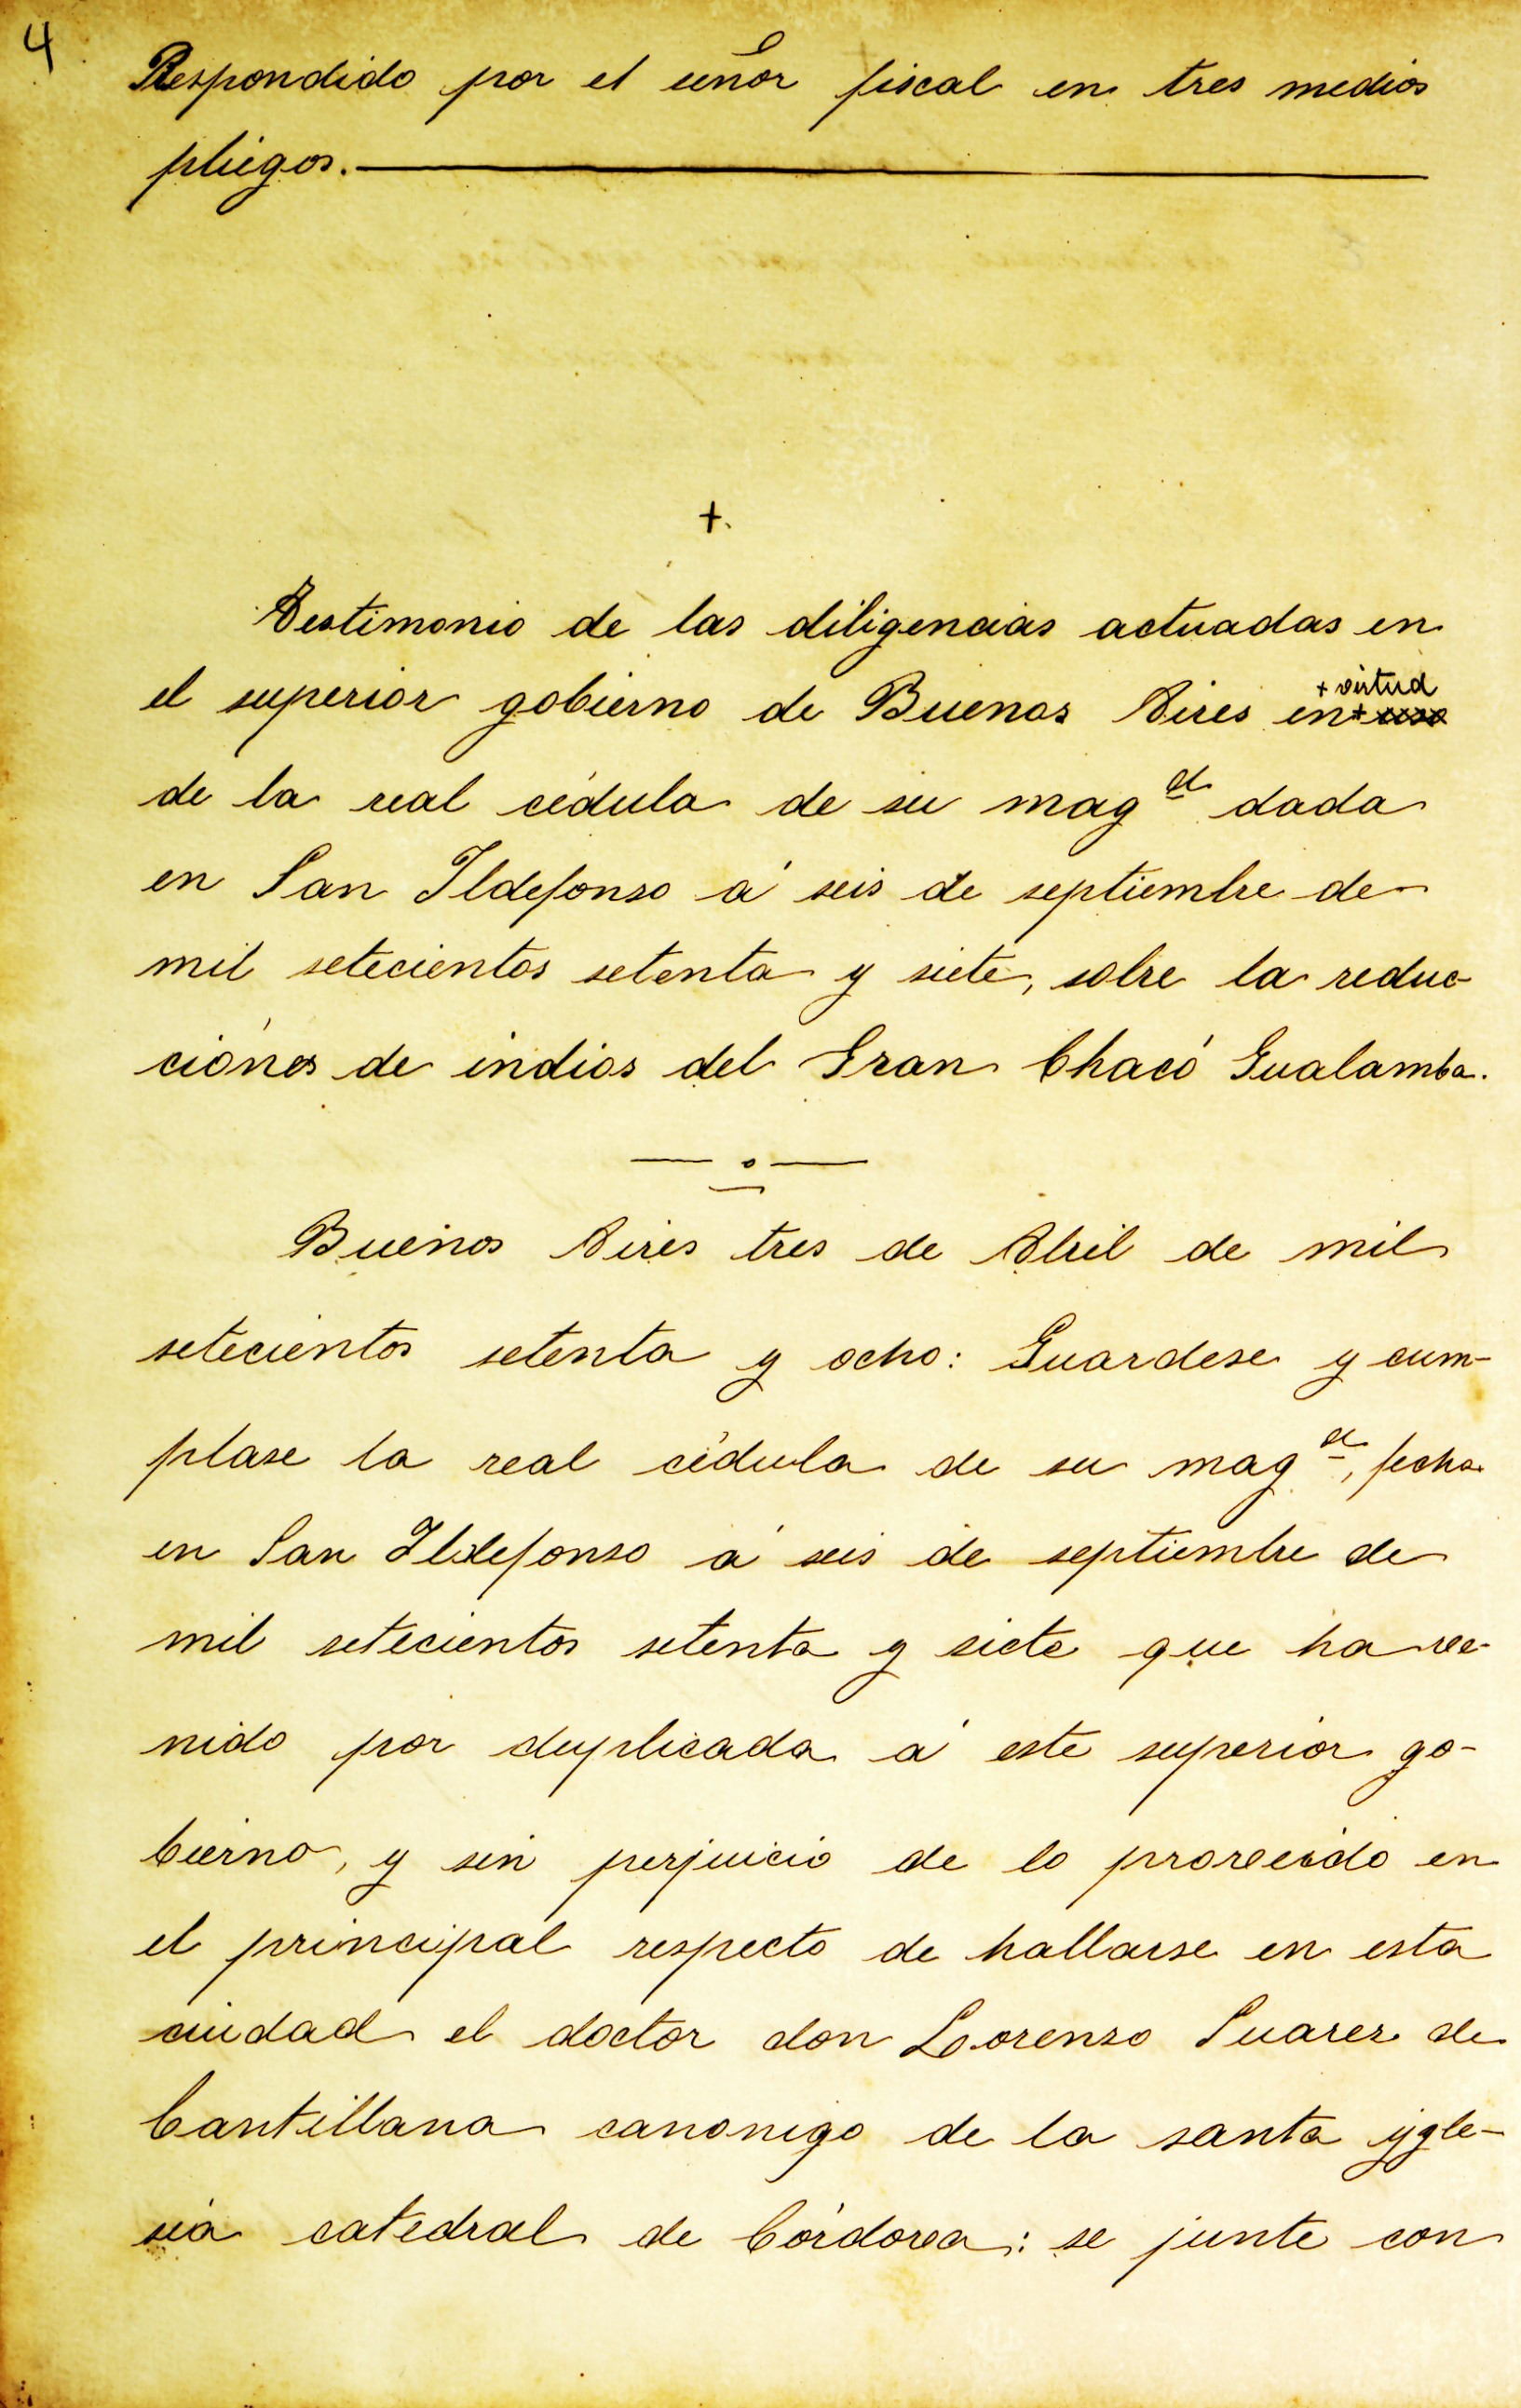 4
Respondido por el señor fiscal en tres medios
pliegos.
+.
Testimonio de las diligencias actuadas en
+ virtud
el superior gobierno de Buenos Aires en +
de la real cédula de su mag^d dada
en San Ildefonso á seis de septiembre de
mil setecientos setenta y siete, sobre la reduc-
ciones de indios del Gran Chacó Gualamba.
Buenos Aires tres de Abril de mil
setecientos setenta y ocho: Guardese y cum-
plase la real cédula de su mag^d, fecha
en San Ildefonso á seis de septiembre de
mil setecientos setenta y siete que ha ve-
nido por duplicada á este superior go-
bierno, y sin perjuicio de lo proveido en
el principal respecto de hallarse en esta
ciudad el doctor don Lorenzo Suarez de
Cantillana canonigo de la santa ygle-
sia catedral de Córdova: se junte con